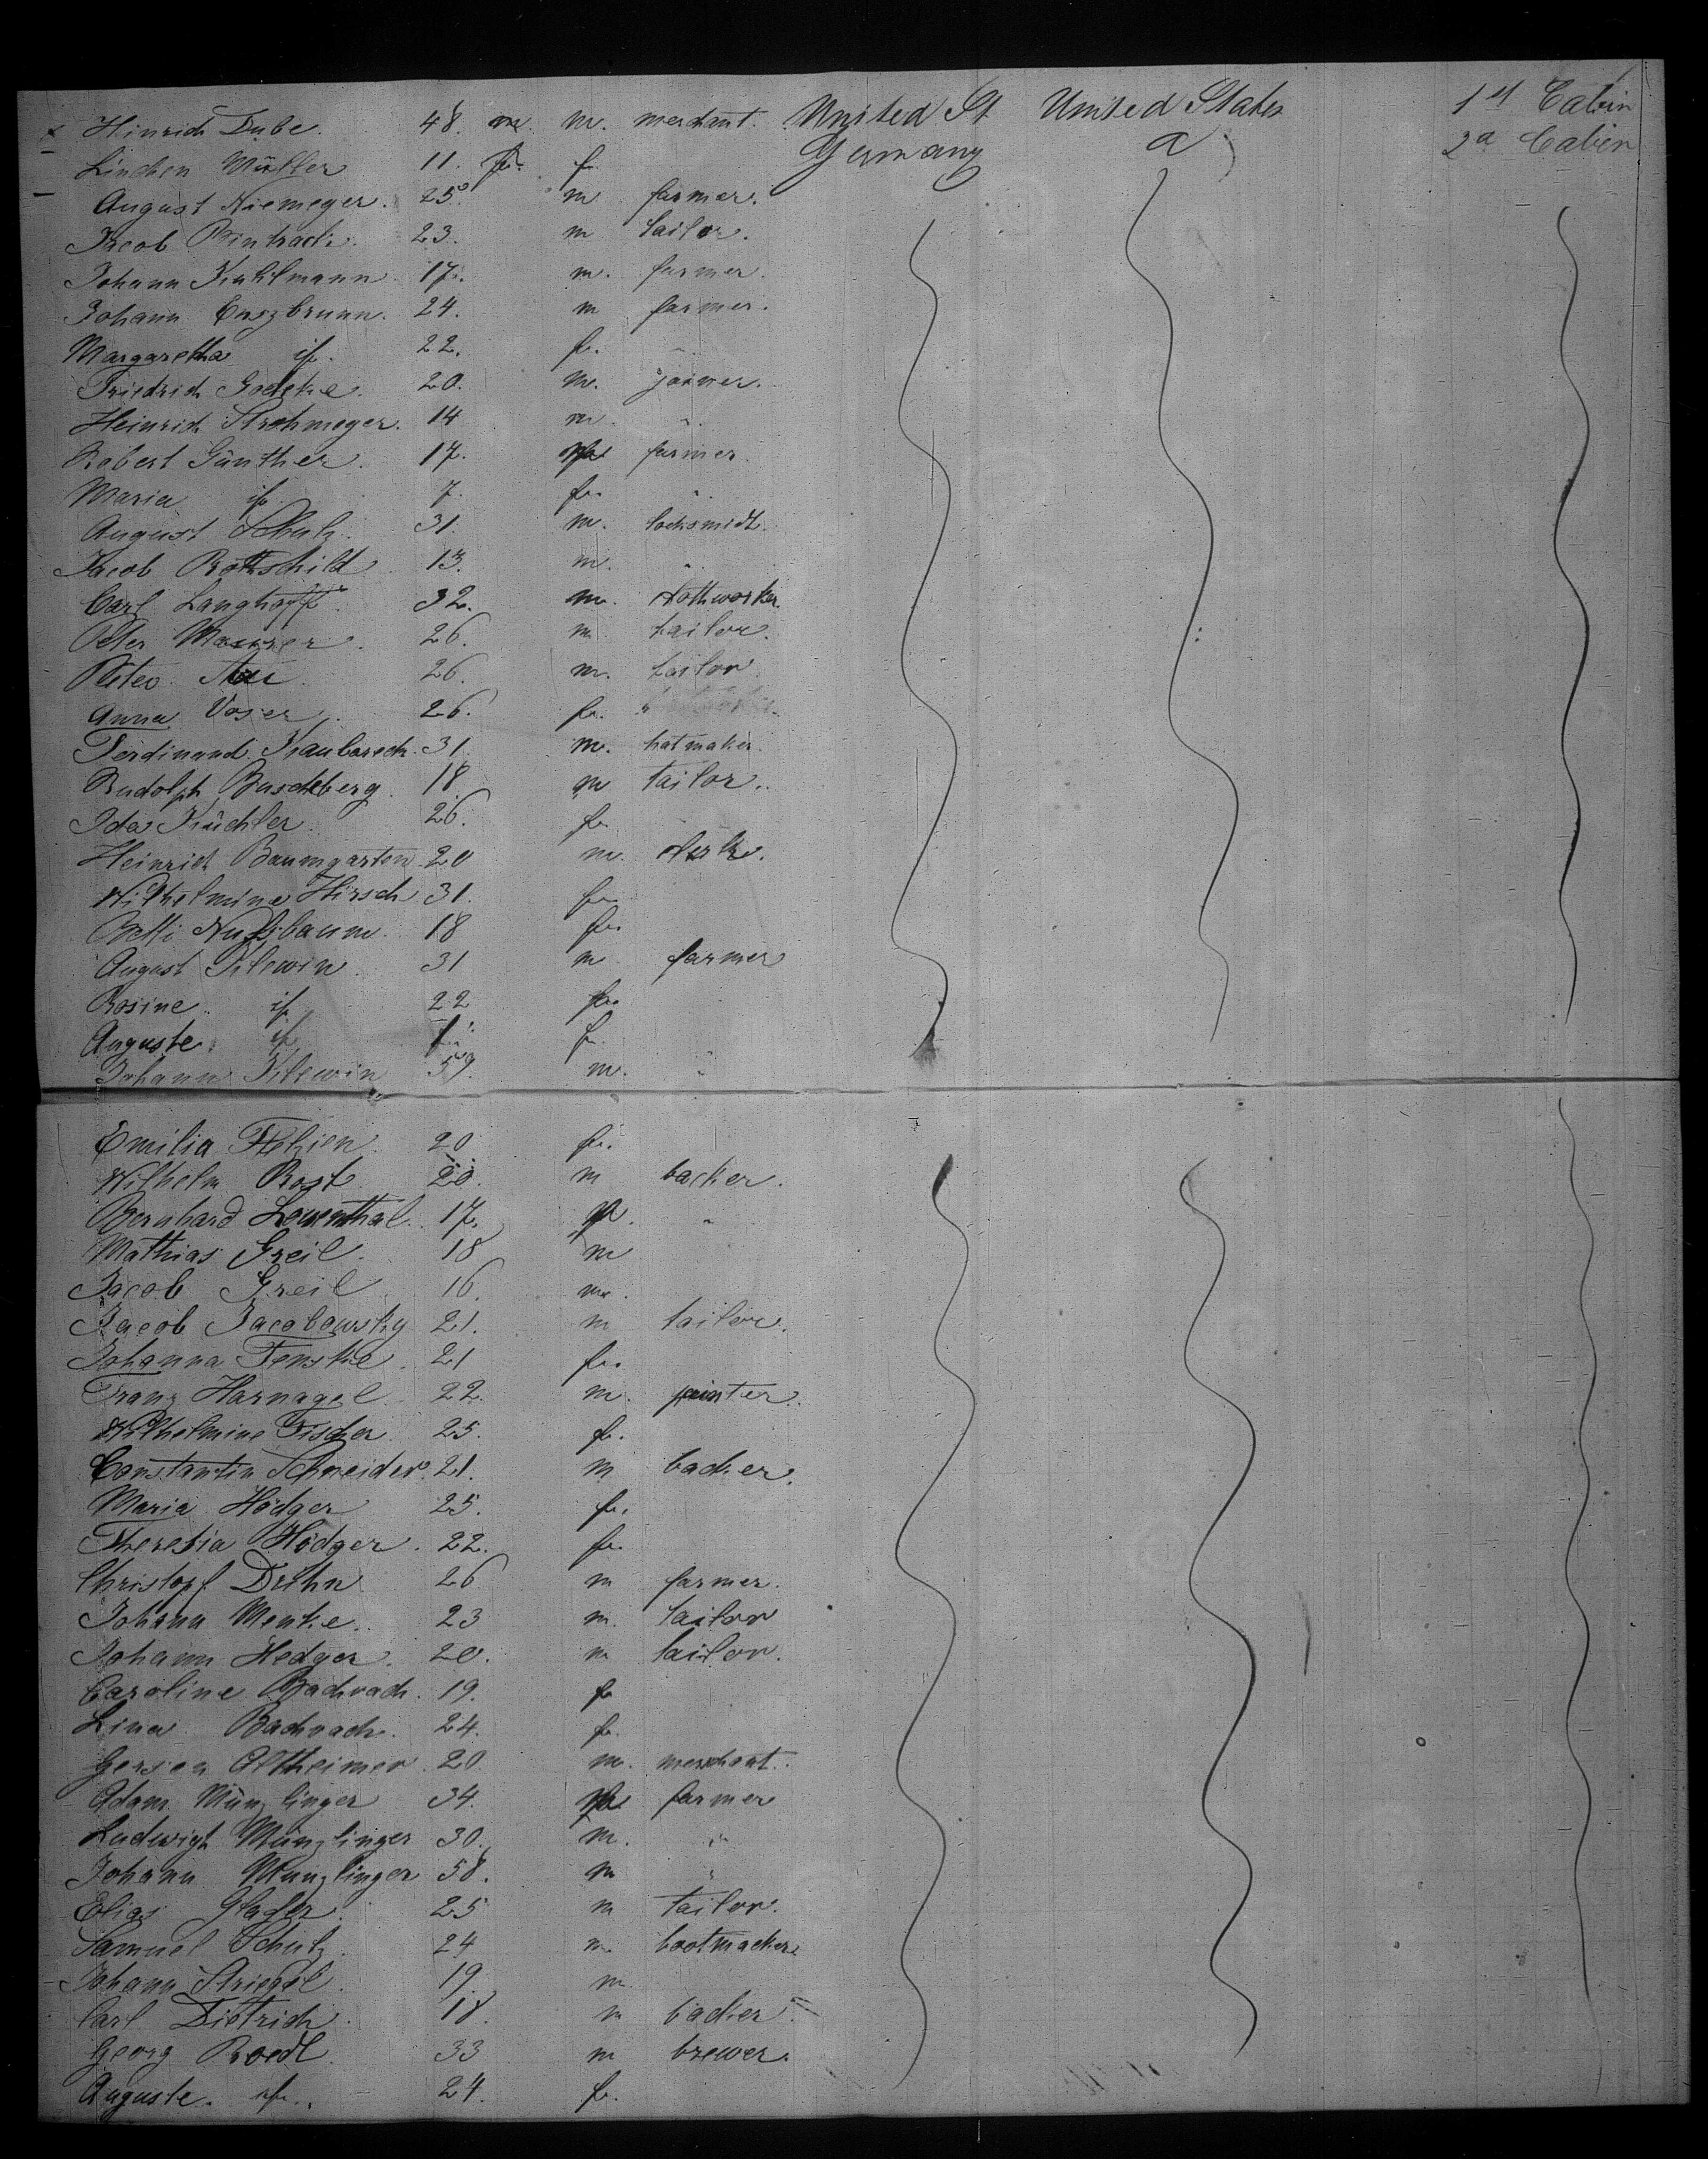 x Hinrich Dube. 48. m. m. merchant. United St United States 1st Cabin
Linchen Müller 11. f. f. Germany a 2d Cabin
August Niemeyer. 25. m farmer.
Jacob 23. m tailor.
Johann Kuhlmann 17. m. farmer.
Johann 24. m farmer.
Margaretha 22. f. "
Friedrich Goedeke. 20. m. joiner.
Heinrich Strohmeyer. 14 m. "
Robert Günther. 17. m farmer
Maria 7. f. "
August Schulz. 31. m. locksmidt.
Jacob Rothschild 13. m. "
Carl Langhoff. 32. m. clothworker.
Peter Maurer. 26. m tailor.
Peter 26. m. tailor
Anna Voser. 26. f.
Ferdinand 31. m. hatmaker.
Rudolph Buschberg. 18. m tailor.
Ida Küchler. 26. f.
Heinrich Baumgarten 20 m. clerk.
Wilhelmine Hirsch 31. f.
Betti Nußbaum. 18 f.
August Klewin. 31 m farmer
Rosine 22 f.
Auguste 1. f.
Johann Klewin 59. m. "
Emilia 20 f. "
Wilhelm Rost 20. m backer.
Bernhard Lowenthal. 17. m. "
Mathias Greil. 18 m
Jacob Greil 16. m.
Jacob Jacobowsky 21. m tailor.
Johanna Fenske. 21 f.
Franz Harnagel. 22. m. painter.
Wilhelmine Fischer 25. f.
Constantin Schneider. 21. m backer.
Maria Hödger 25. f.
Theresia Hödger. 22. f.
Christopf Dühn 26 m farmer.
Johann Menke. 23 m. tailor
Johann Hedger. 20. m tailor.
Caroline Bachrach. 19. f
Lina Bachrach. 24. f.
Gerson Altheimer. 20 m. merchant.
Adam Münzlinger 34. m farmer
Ludwigh Münzlinger 30. m. "
Johann Munzlinger 58. m "
Elias 25 m tailor.
Samuel Schulz. 24 m. bootmacker
Johann Striegel. 19. m
Carl Dietrich. 18. m backer.
Georg Roedl. 33 m brewer.
Auguste. 24. f.